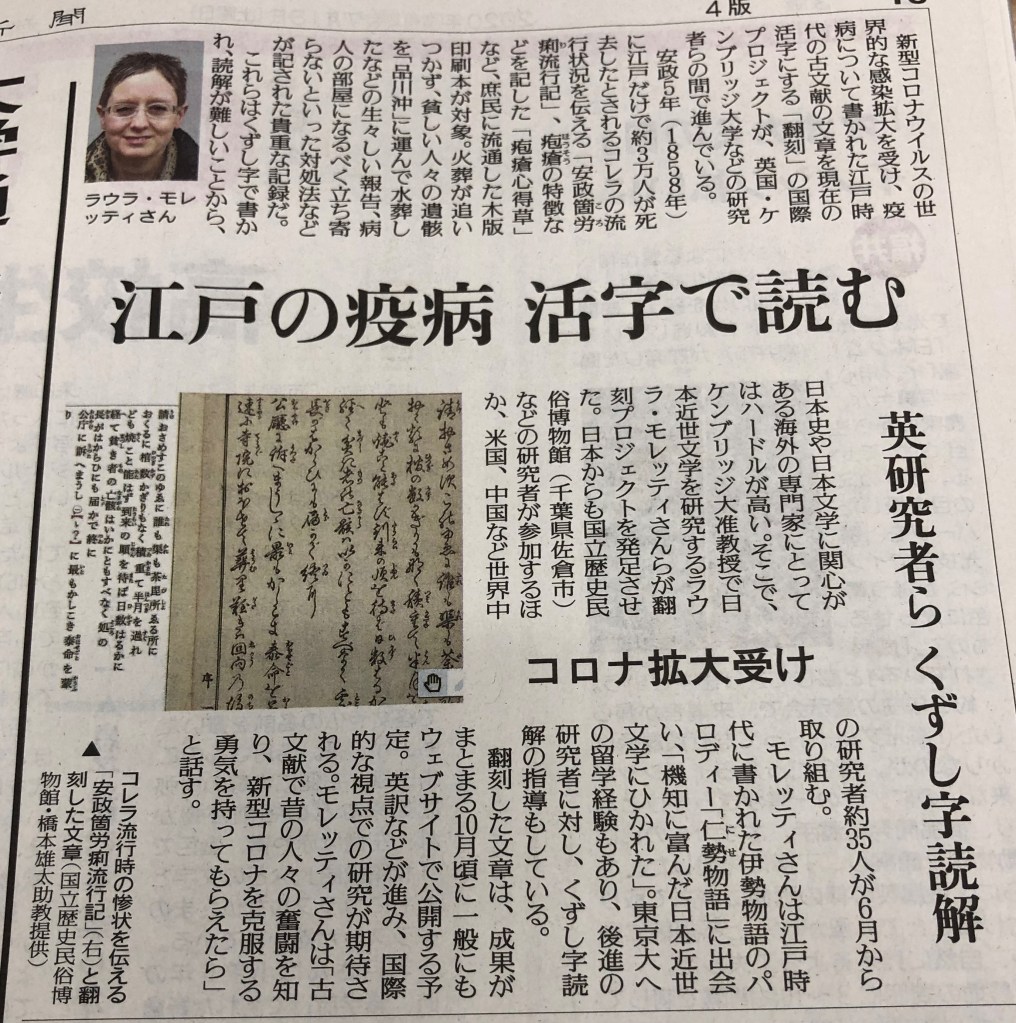 4版
江戸の疫病 活字で読む
英研究者ら くずし字読解
コロナ拡大受け
新型コロナウイルスの世
界的な感染拡大を受け、疫
病について書かれた江戸時
代の古文献の文章を現在の
活字にする「翻刻」の国際
プロジェクトが、英国・ケ
ンブリッジ大学などの研究
者らの間で進んでいる。
安政5年(1858年)
に江戸だけで約3万人が死
去したとされるコレラの流
行状況を伝える「安政箇労
痢流行記」、疱瘡の特徴な
どを記した「疱瘡心得草」
など、庶民に流通した木版
印刷本が対象。火葬が追い
つかず、貧しい人々の遺骸
を「品川沖」に運んで水葬し
たなどの生々しい報告、病
人の部屋になるべく立ち寄
らないといった対処法など
が記された貴重な記録だ。
これらはくずし字で書か
れ、読解が難しいことから、
ラウラ・モレ
ッティさん
日本史や日本文学に関心が
ある海外の専門家にとって
はハードルが高い。そこで、
ケンブリッジ大准教授で日
本近世文学を研究するラウ
ラ・モレッティさんらが翻
刻プロジェクトを発足させ
た。日本からも国立歴史民
俗博物館(千葉県佐倉市)
などの研究者が参加するほ
か、米国、中国など世界中
の研究者約35人が6月から
取り組む。
モレッティさんは江戸時
代に書かれた伊勢物語のパ
ロディー「仁勢物語」に出会
い、「機知に富んだ日本近世
文学にひかれた」。東京大へ
の留学経験もあり、後進の
研究者に対し、くずし字読
解の指導もしている。
翻刻した文章は、成果が
まとまる10月頃に一般にも
ウェブサイトで公開する予
定。英訳などが進み、国際
的な視点での研究が期待さ
れる。モレッティさんは「古
文献で昔の人々の奮闘を知
り、新型コロナを克服する
勇気を持ってもらえたら」
と話す。
序
▲コレラ流行時の惨状を伝える
「安政箇労痢流行記」(右)と翻
刻した文章(国立歴史民俗博
物館・橋本雄太助教提供)